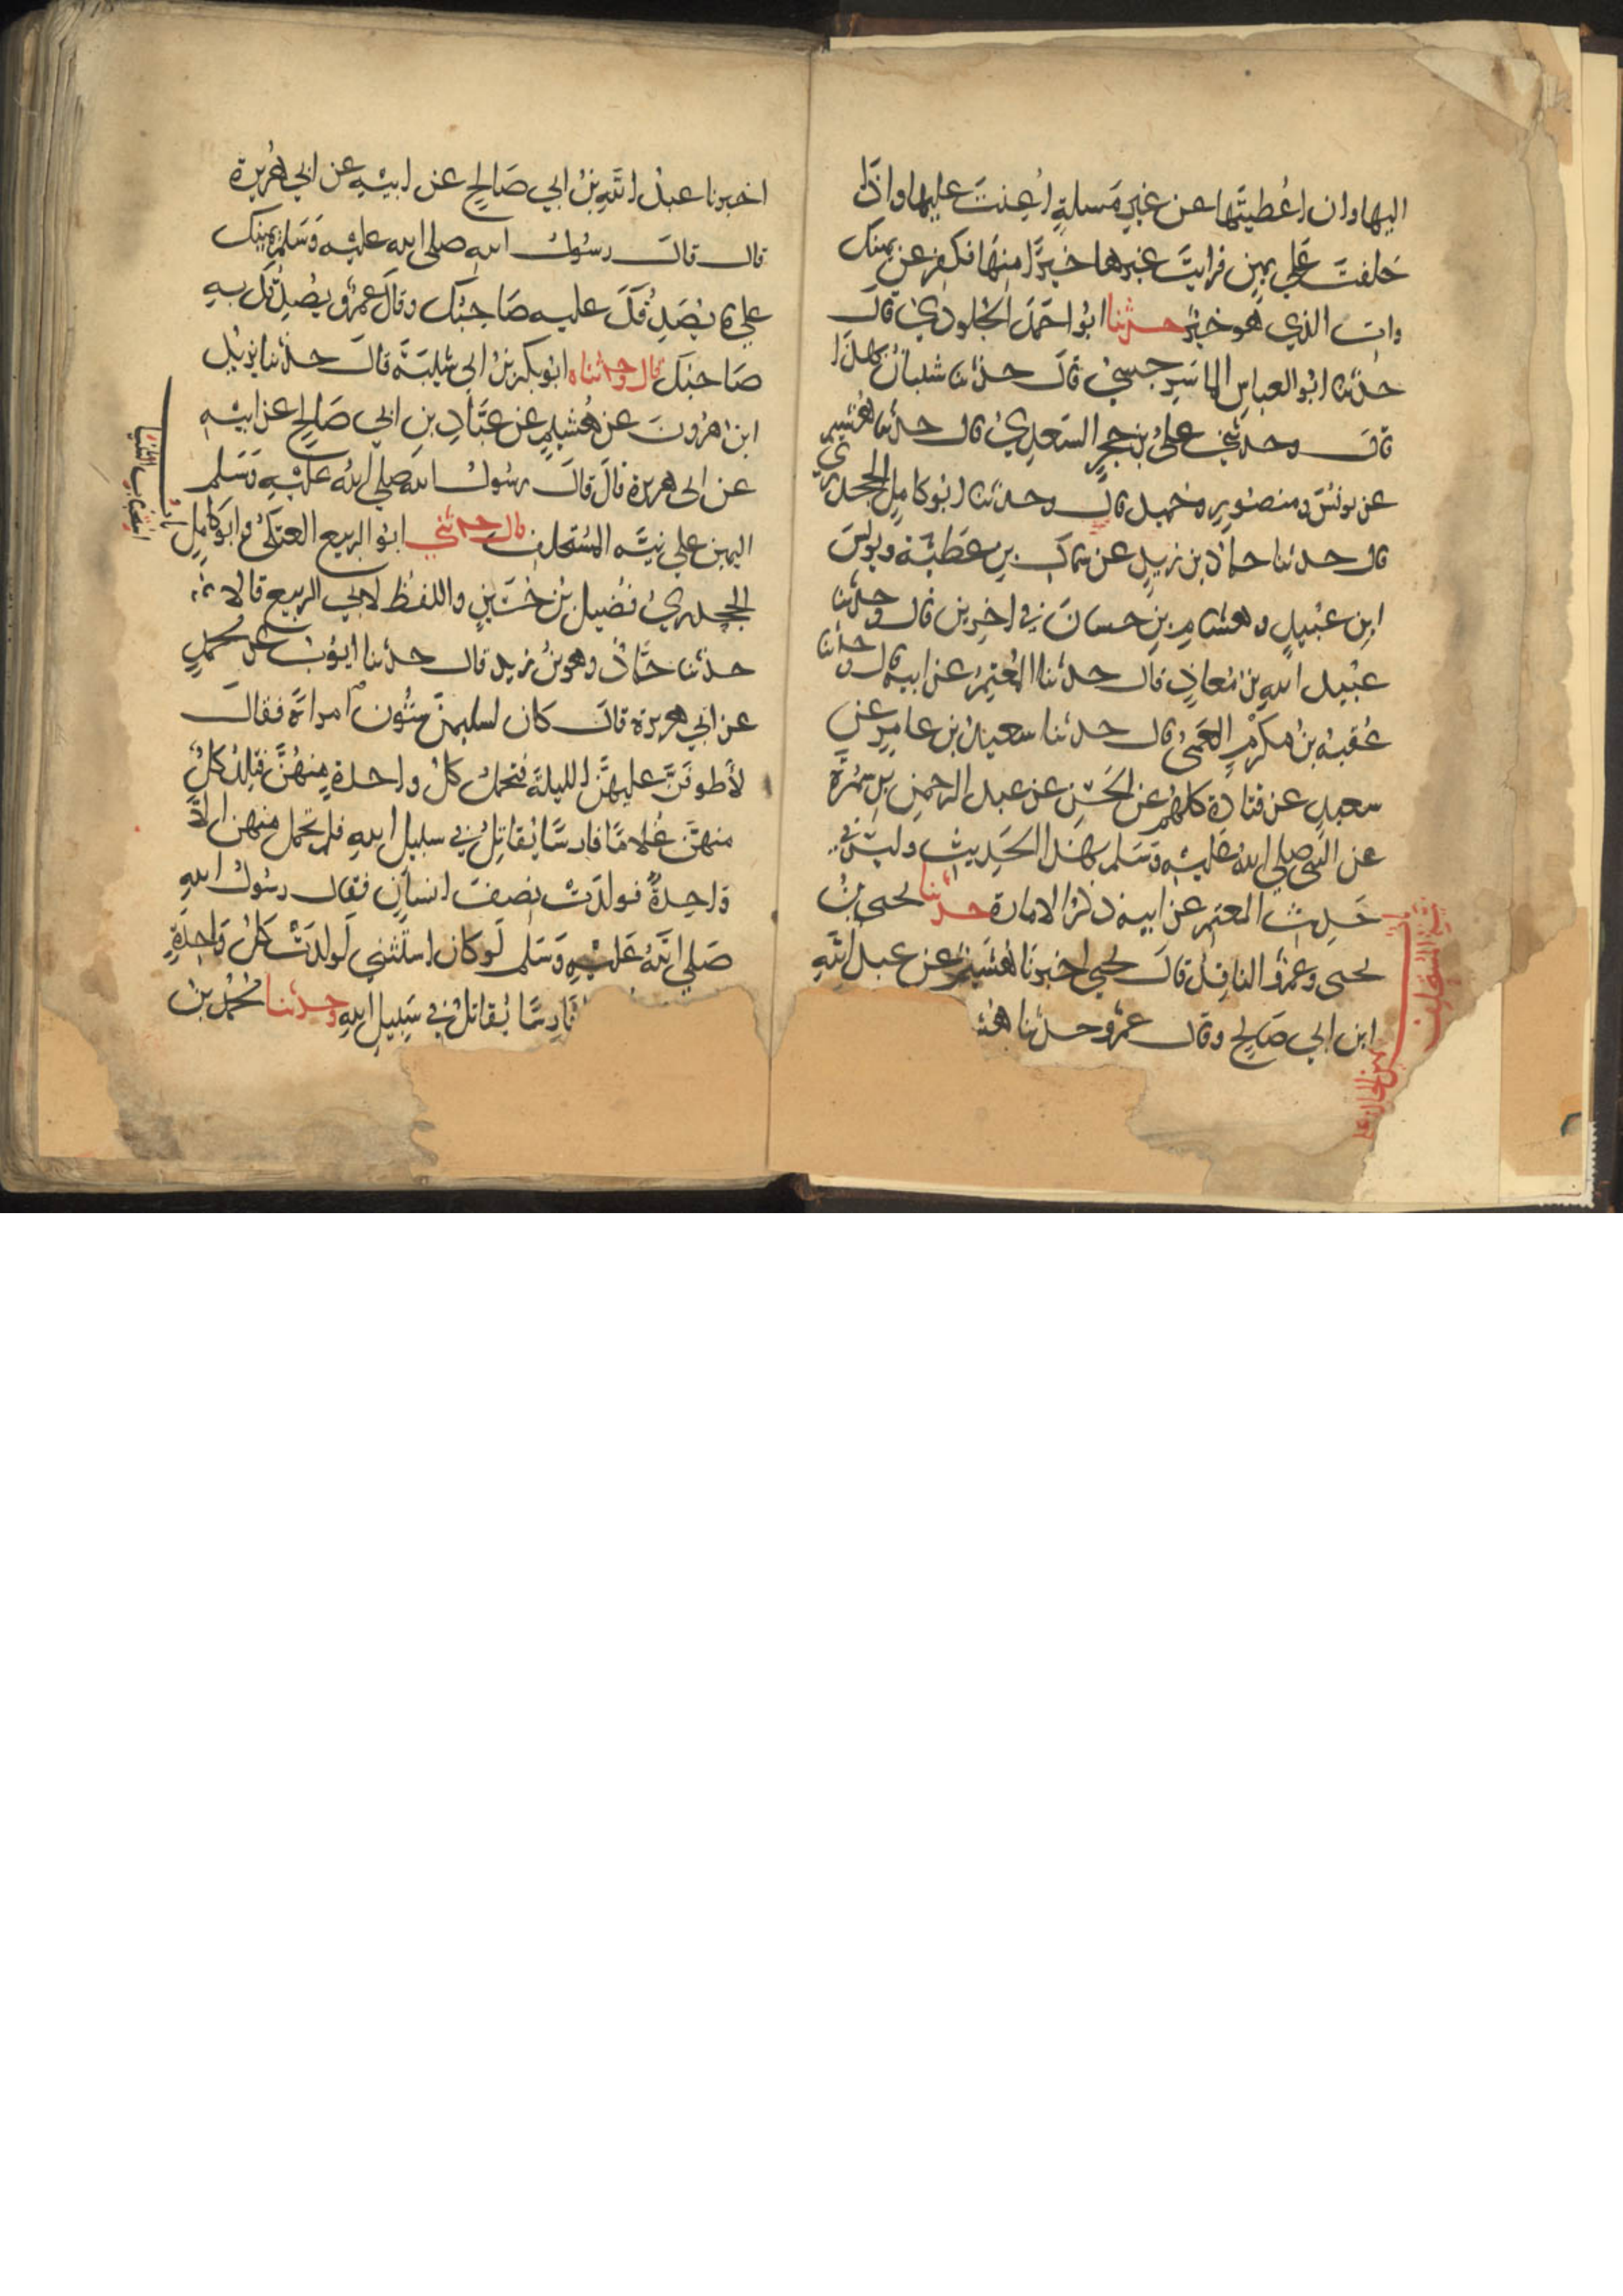 اليها وان اعطيتها عن غير مسلة اعنت عليها واذا
حلفت على يمين فرايت غيرها خيرا منها فكفر عن يمينك
وات الذي هو خير حدثنا ابو احمد الجلودي قال
حدثنا ابو العباس الماسرجسي قال حدثنا شيبان بهذا
قال وحدثني علي بن حجر السعدي قال حدثنا هشيم
عن يونس ومنصور وحميد قال وحدثنا ابو كامل الجحدري
قال حدثنا حماد بن زيد عن سماك بن عطية ويونس
ابن عبيد وهشام بن حسان في اخرين قال وحدثنا
عبيد الله بن معاذ قال حدثنا المعتمر عن ابيه قال وحدثنا
عقبة بن مكرم العمي قال حدثنا سعيد بن عامر عن
سعيد عن قتادة كلهم عن الحسن عن عبد الرحمن بن سمرة
عن النبي صلى الله عليه وسلم بهذا الحديث وليس في
حديث المعتمر عن ابيه ذكر الامارة حدثنا يحيى بن
يحيى وعمرو الناقد قال يحيى اخبرنا هشيم عن عبد الله
ابن ابي صالح وقال عمرو حدثنا هش
باب
يمين الحالف على
نية المستحلف
اخبرنا عبد الله بن ابي صالح عن ابيه عن ابي هريرة
قال قال رسول الله صلى الله عليه وسلم يمينك
على ما يصدقك عليه صاحبك وقال عمرو يصدقك به
صاحبك قال وحدثناه ابو بكر بن ابي شيبة قال حدثنا يزيد
ابن هرون عن هشيم عن عباد بن ابي صالح عن ابيه
عن ابي هريرة قال قال رسول الله صلى الله عليه وسلم
اليمين على نية المستحلف قال حدثني ابو الربيع العتكي وابو كامل
الجحدري فضيل بن حسين واللفظ لابي الربيع قالا
حدثنا حماد وهو بن زيد قال حدثنا ايوب عن محمد
عن ابي هريرة قال كان لسليمن ستون امراة فقال
لأطوفن عليهن الليلة فتحمل كل واحدة منهن فتلد كل
منهن غلاما فارسا يقاتل في سبيل الله فلم تحمل منهن الا
واحدة فولدت نصف انسان فقال رسول الله
صلى الله عليه وسلم لو كان استثنى لولدت كل واحدة
فارسا يقاتل في سبيل الله وحدثنا محمد بن
باب